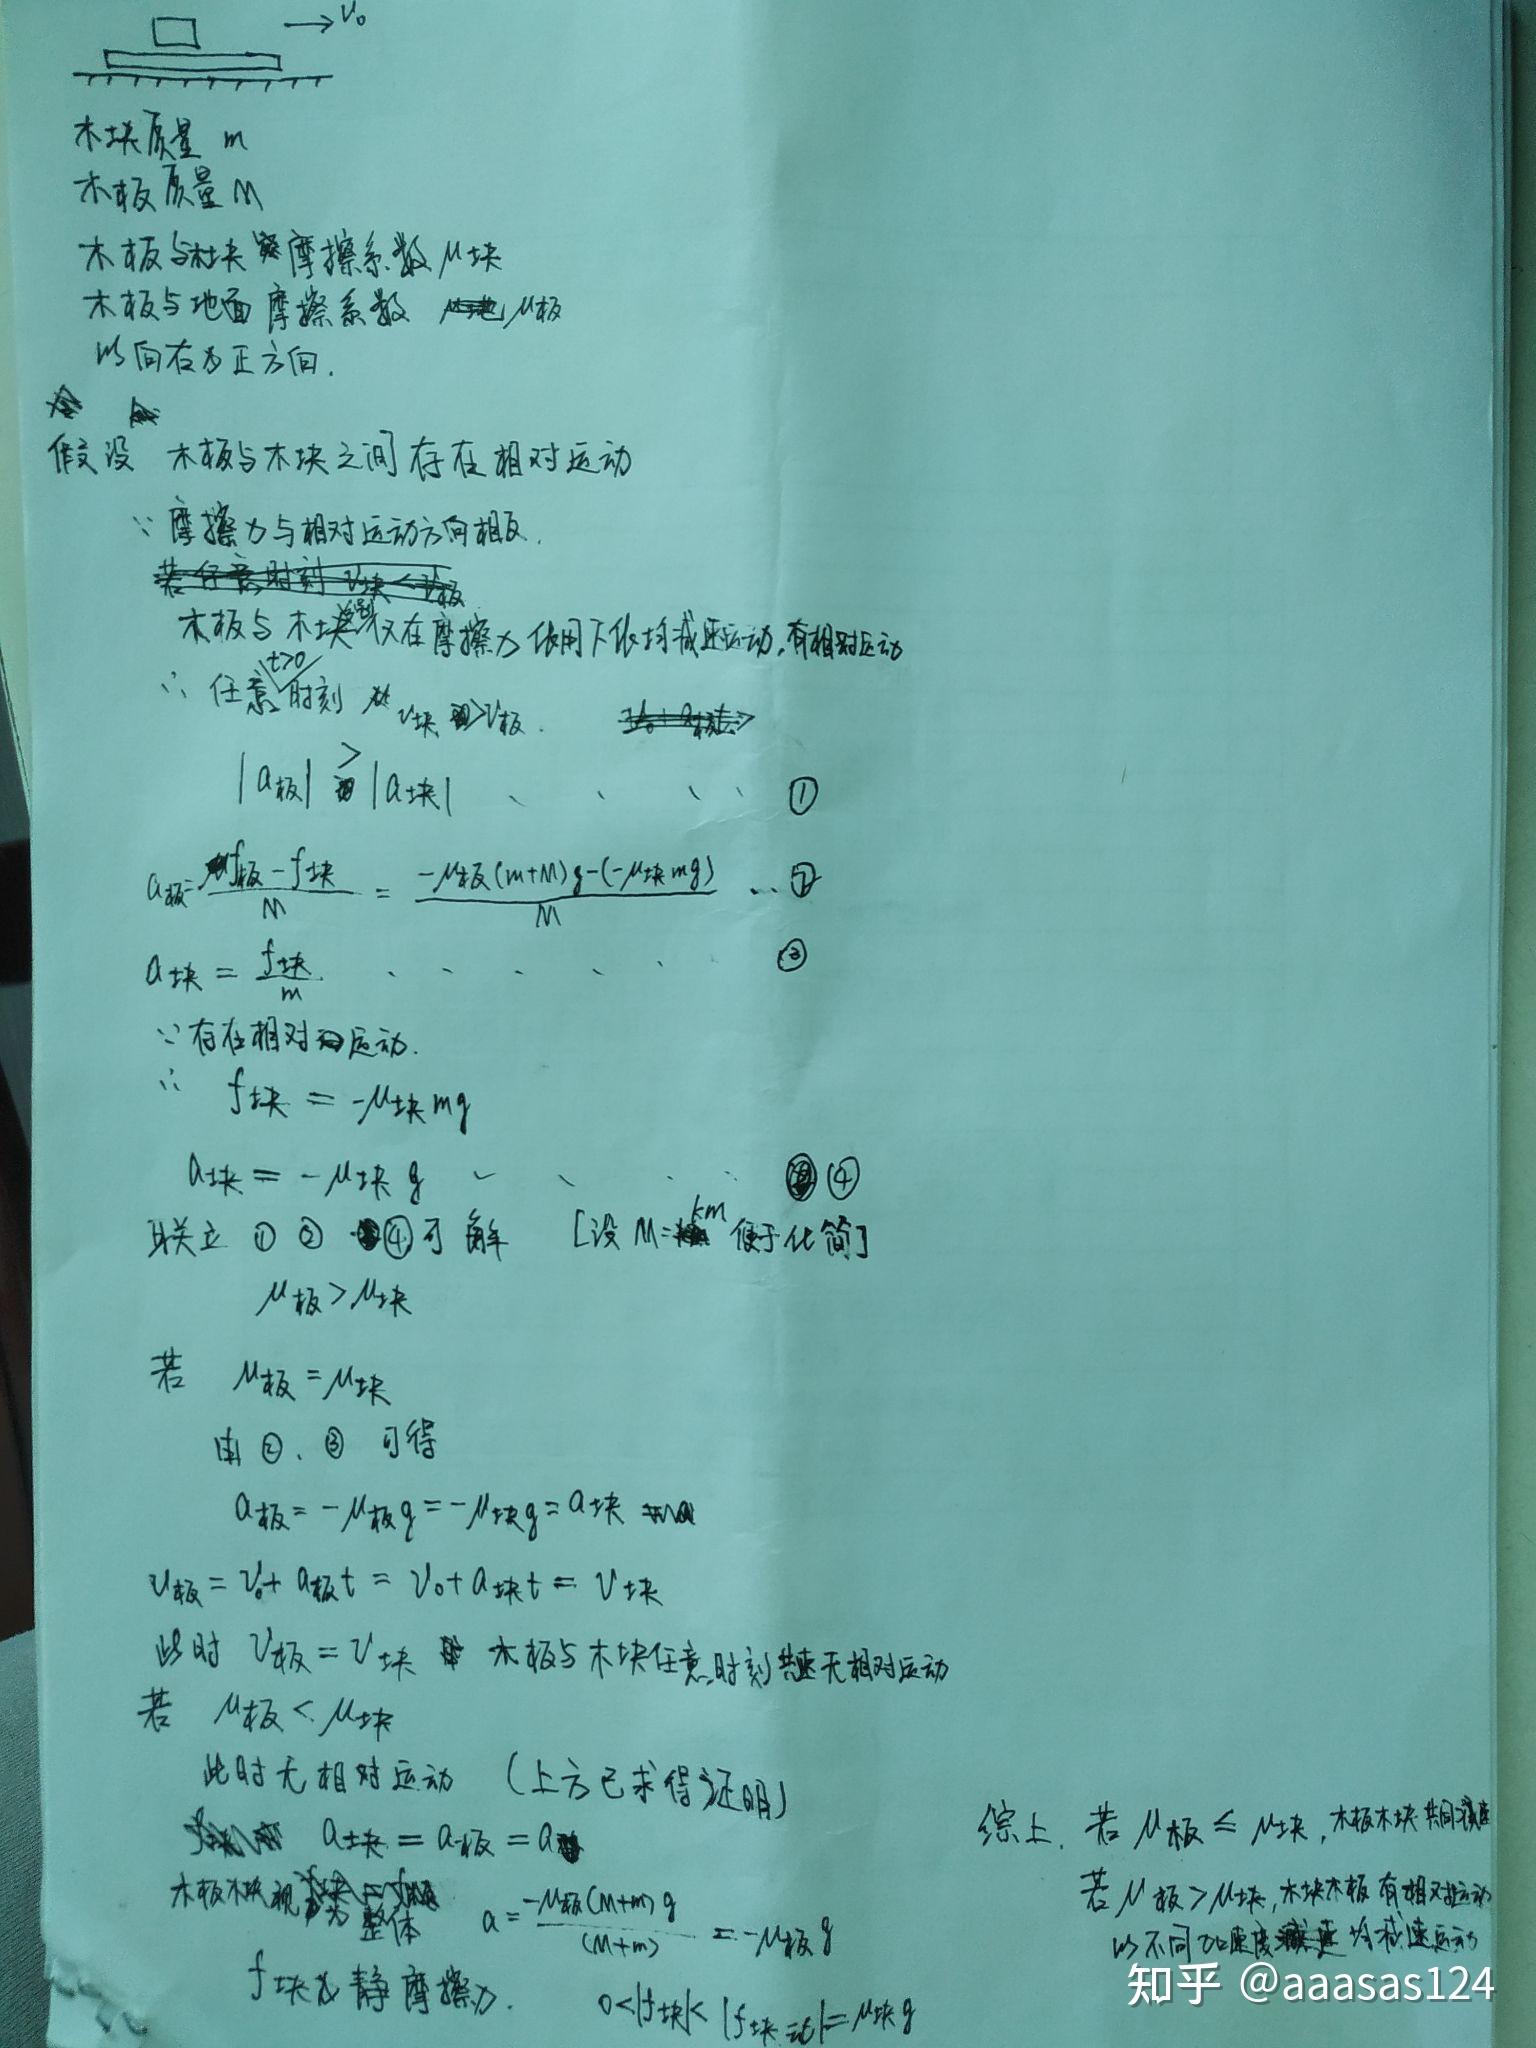 v₀
木块质量 m
木板质量 M
木板与木块 摩擦系数 μ块
木板与地面摩擦系数 μ板
以向右为正方向.
假设 木板与木块之间存在相对运动
∵ 摩擦力与相对运动方向相反.
木板与木块 仅在摩擦力作用下做匀减速运动,有相对运动
∴ 任意 t>0 时刻 v块 > v板.
|a板| > |a块| ①
a板 = (f板 - f块)/M = (-μ板(m+M)g-(-μ块mg))/M ... ②
a块 = f块/m ③
∵ 存在相对运动.
∴ f块 = -μ块mg
a块 = -μ块g ④
联立 ① ② ④ 可解 [设 M=km 便于化简]
μ板 > μ块
若 μ板 = μ块
由 ②、③ 可得
a板 = -μ板g = -μ块g = a块
v板 = v₀ + a板t = v₀ + a块t = v块
此时 v板 = v块 木板与木块任意时刻共速无相对运动
若 μ板 < μ块
此时无相对运动 (上方已求得证明)
a块 = a板 = a
木板木块视为整体 a = -μ板(M+m)g/(M+m) = -μ板g
f块为静摩擦力. 0<|f块|<|f块动|=μ块g
综上, 若 μ板 ≤ μ块, 木板木块共同减速
若 μ板 > μ块, 木块木板有相对运动
以不同加速度 匀减速运动
知乎 @aaasas124